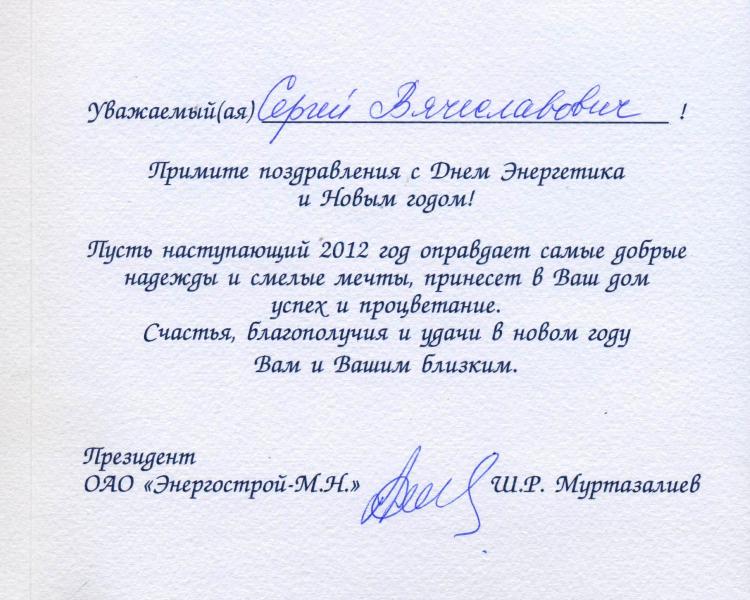 Уважаемый(ая) Сергей Вячеславович !
Примите поздравления с Днем Энергетика
и Новым годом!
Пусть наступающий 2012 год оправдает самые добрые
надежды и смелые мечты, принесет в Ваш дом
успех и процветание.
Счастья, благополучия и удачи в новом году
Вам и Вашим близким.
Президент
ОАО «Энергострой-М.Н.» Ш.Р. Муртазалиев